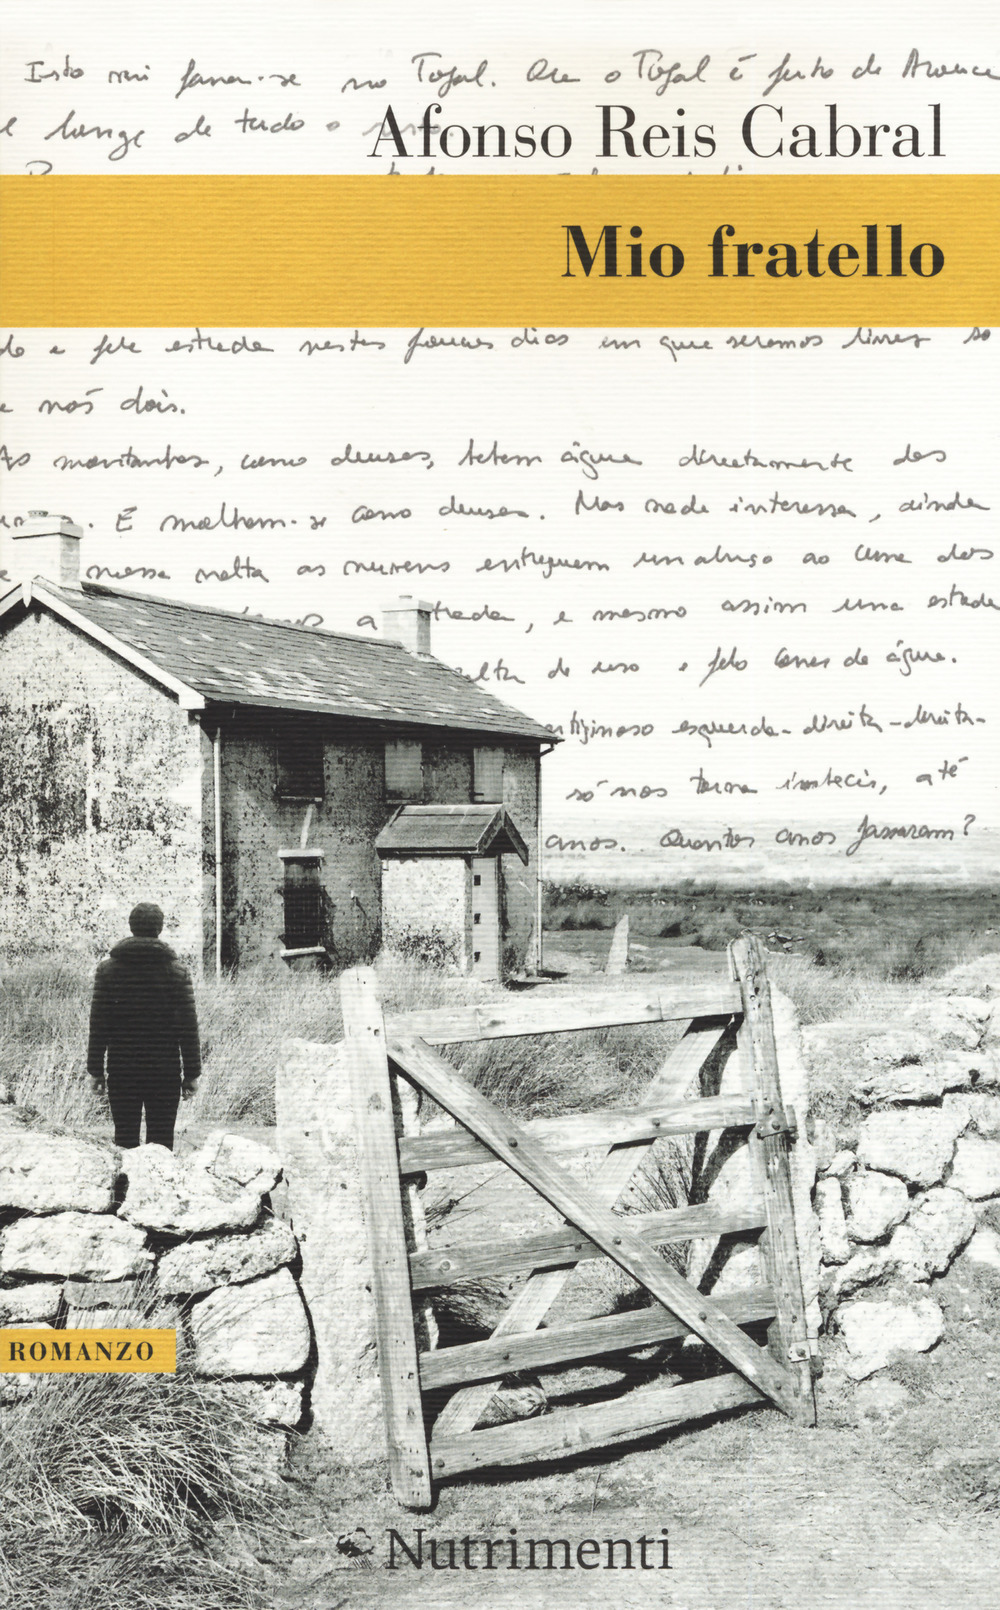 Isto vai passar-se no Tojal. Ora o Tojal é perto de Arouca
e longe de tudo o resto.
Afonso Reis Cabral
Mio fratello
e pela estrada nestes poucos dias em que seremos livres só
e nós dois.
As montanhas, como deusas, bebem água directamente dos
. E molham-se como deusas. Mas nada interessa, ainda
nossa volta as nuvens entreguem um abraço ao cume dos
a estrada, e mesmo assim uma estrada
falta de uso e pelo correr da água.
vertiginoso esquerda-direita-direita-
só nos torna imbecis, até
anos. Quantos anos passaram?
ROMANZO
Nutrimenti